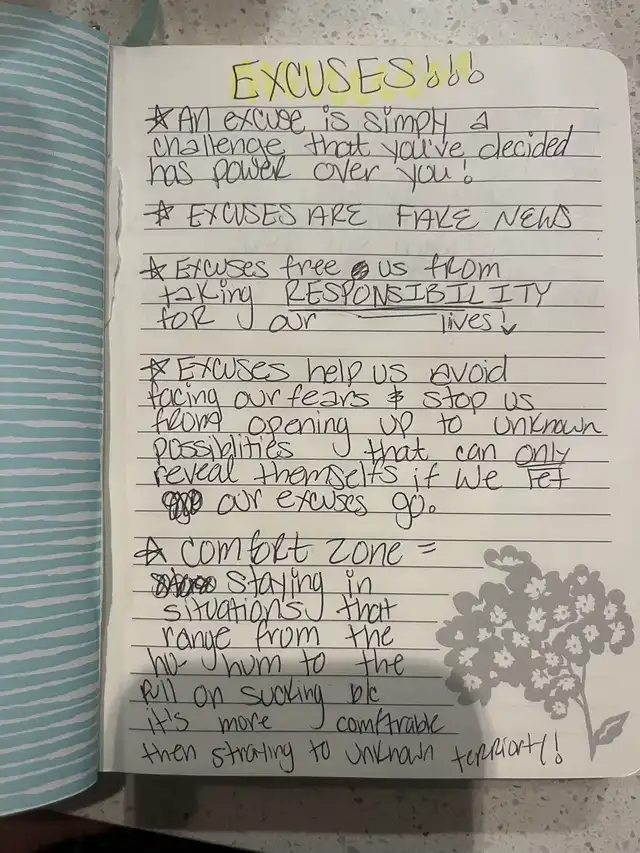 EXCUSES!!!
☆ An excuse is simply a
challenge that you've decided
has power over you!
☆ EXCUSES ARE FAKE NEWS
☆ Excuses free us from
taking RESPONSIBILITY
for our lives!
☆ Excuses help us avoid
facing our fears & stop us
from opening up to unknown
possiblities that can only
reveal themselfs if we let
our excuses go.
☆ comfort zone =
staying in
situations that
range from the
ho-hum to the
full on sucking b/c
it's more comftrable
then straying to unknown terriorty!